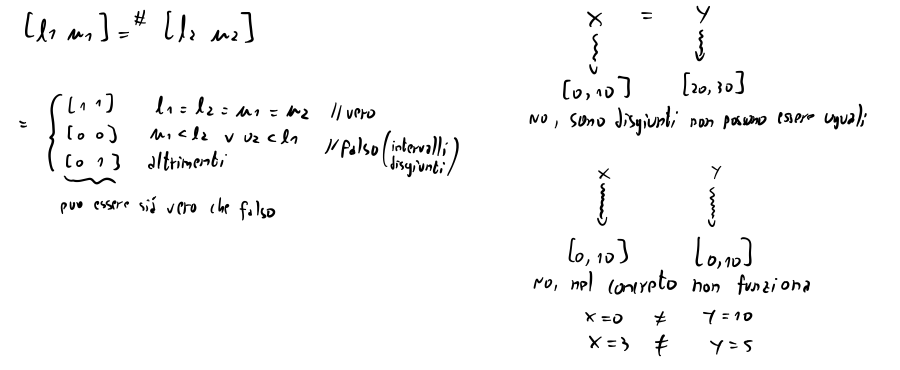 [l₁ u₁] =# [l₂ u₂]
= { [1 1] l₁ = l₂ = u₁ = u₂ // vero
[0 0] u₁ < l₂ ∨ u₂ < l₁ // falso (intervalli disgiunti)
[0 1] altrimenti
può essere sia vero che falso
X = Y
[0, 10] [20, 30]
NO, sono disgiunti non possono essere uguali
X Y
[0, 10] [0, 10]
NO, nel concreto non funziona
X=0 ≠ Y=10
X=3 ≠ Y=5